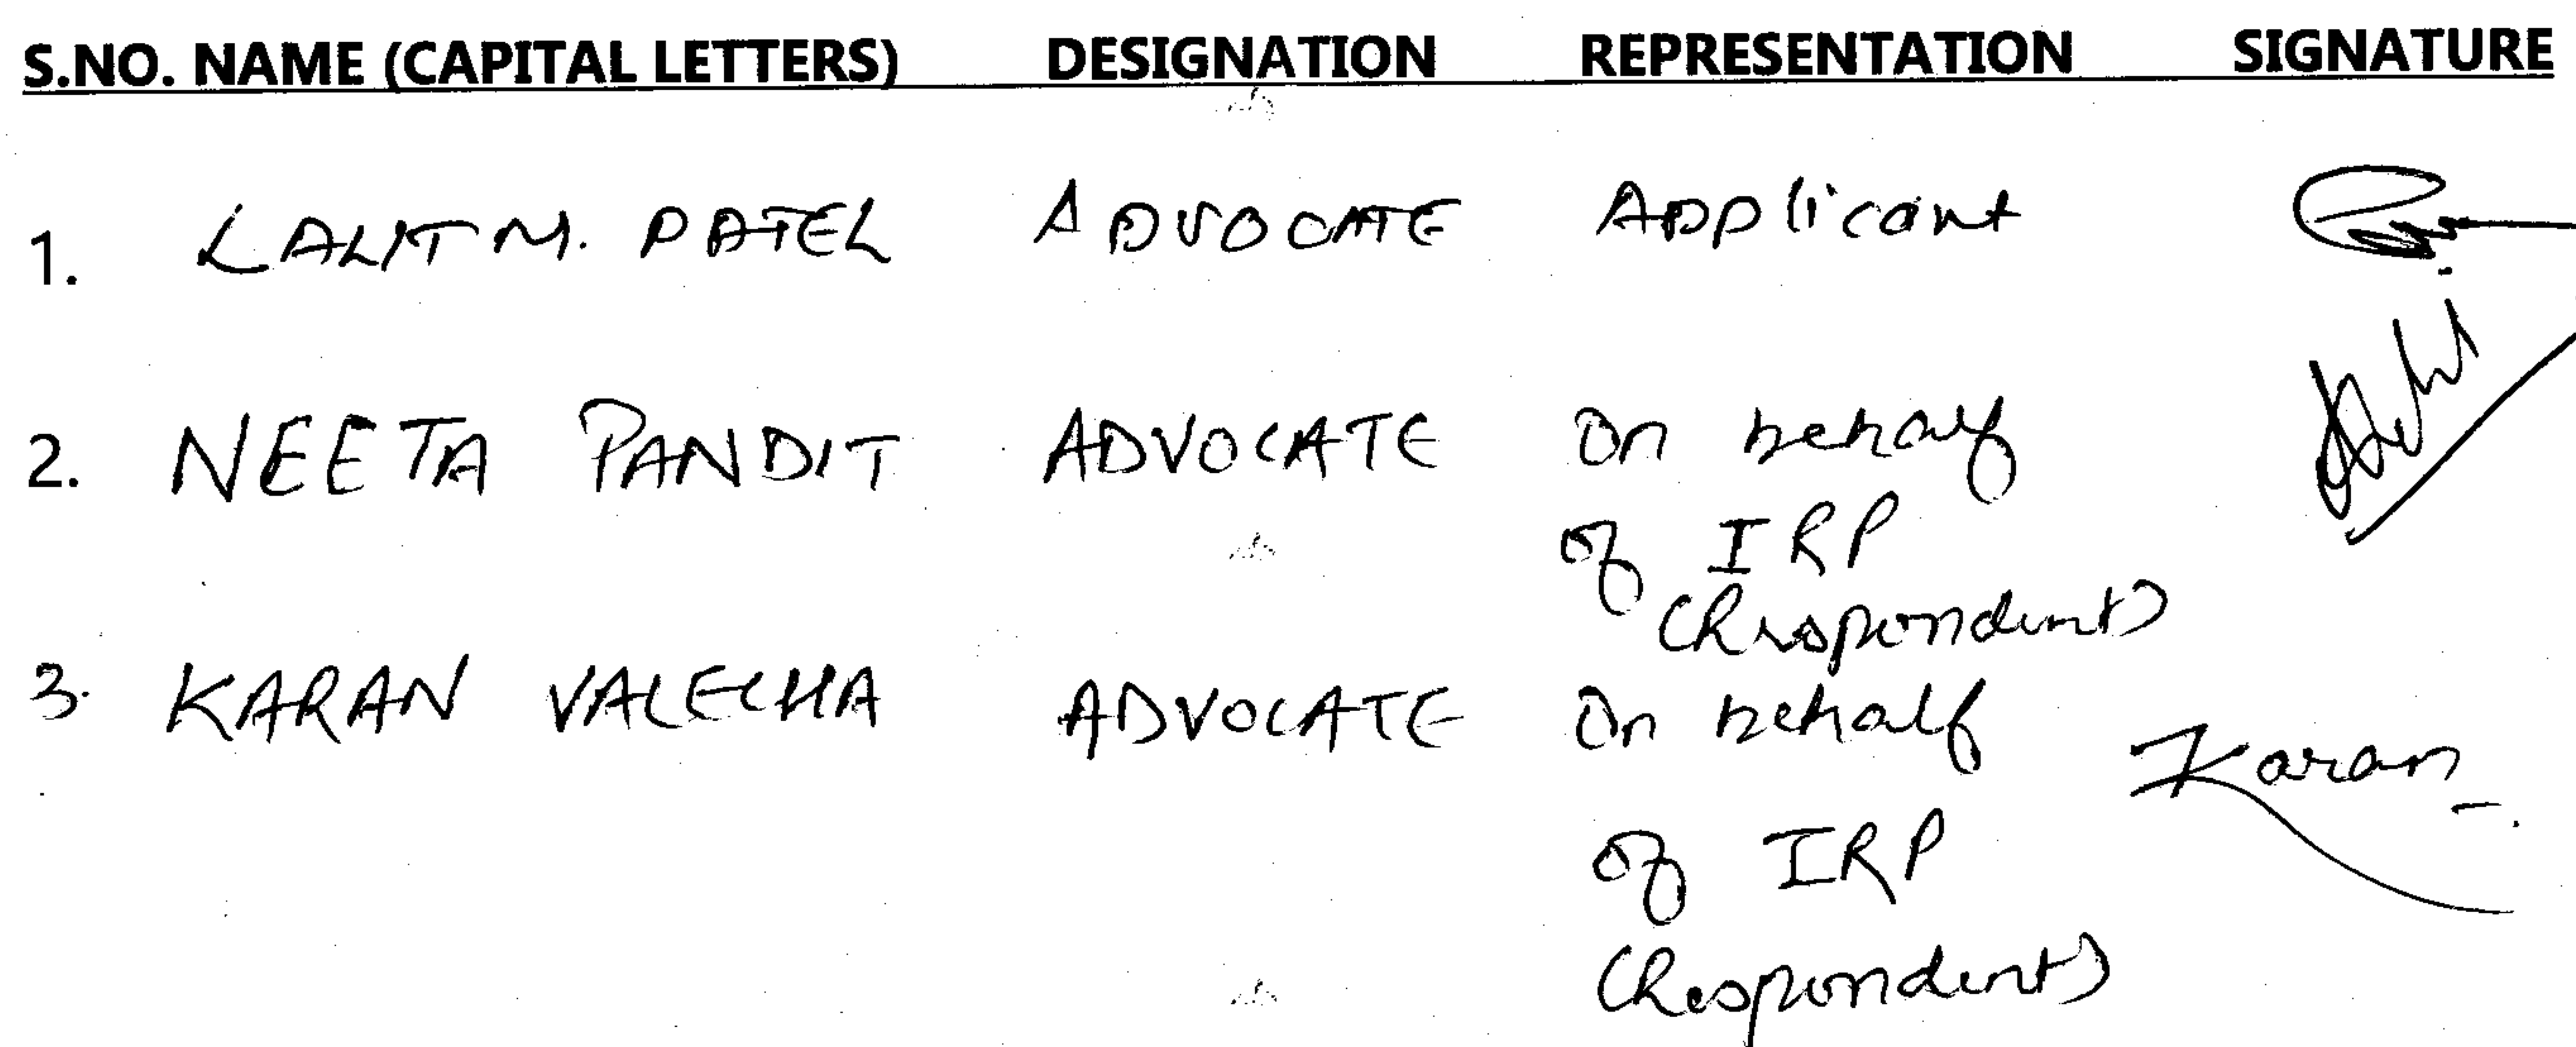 S.NO. NAME (CAPITAL LETTERS) DESIGNATION REPRESENTATION SIGNATURE
1. LALIT M. PATEL ADVOCATE Applicant
2. NEETA PANDIT ADVOCATE On behalf
of IRP
(Respondent)
3. KARAN VALECHA ADVOCATE On behalf Karan
of IRP
(Respondent)